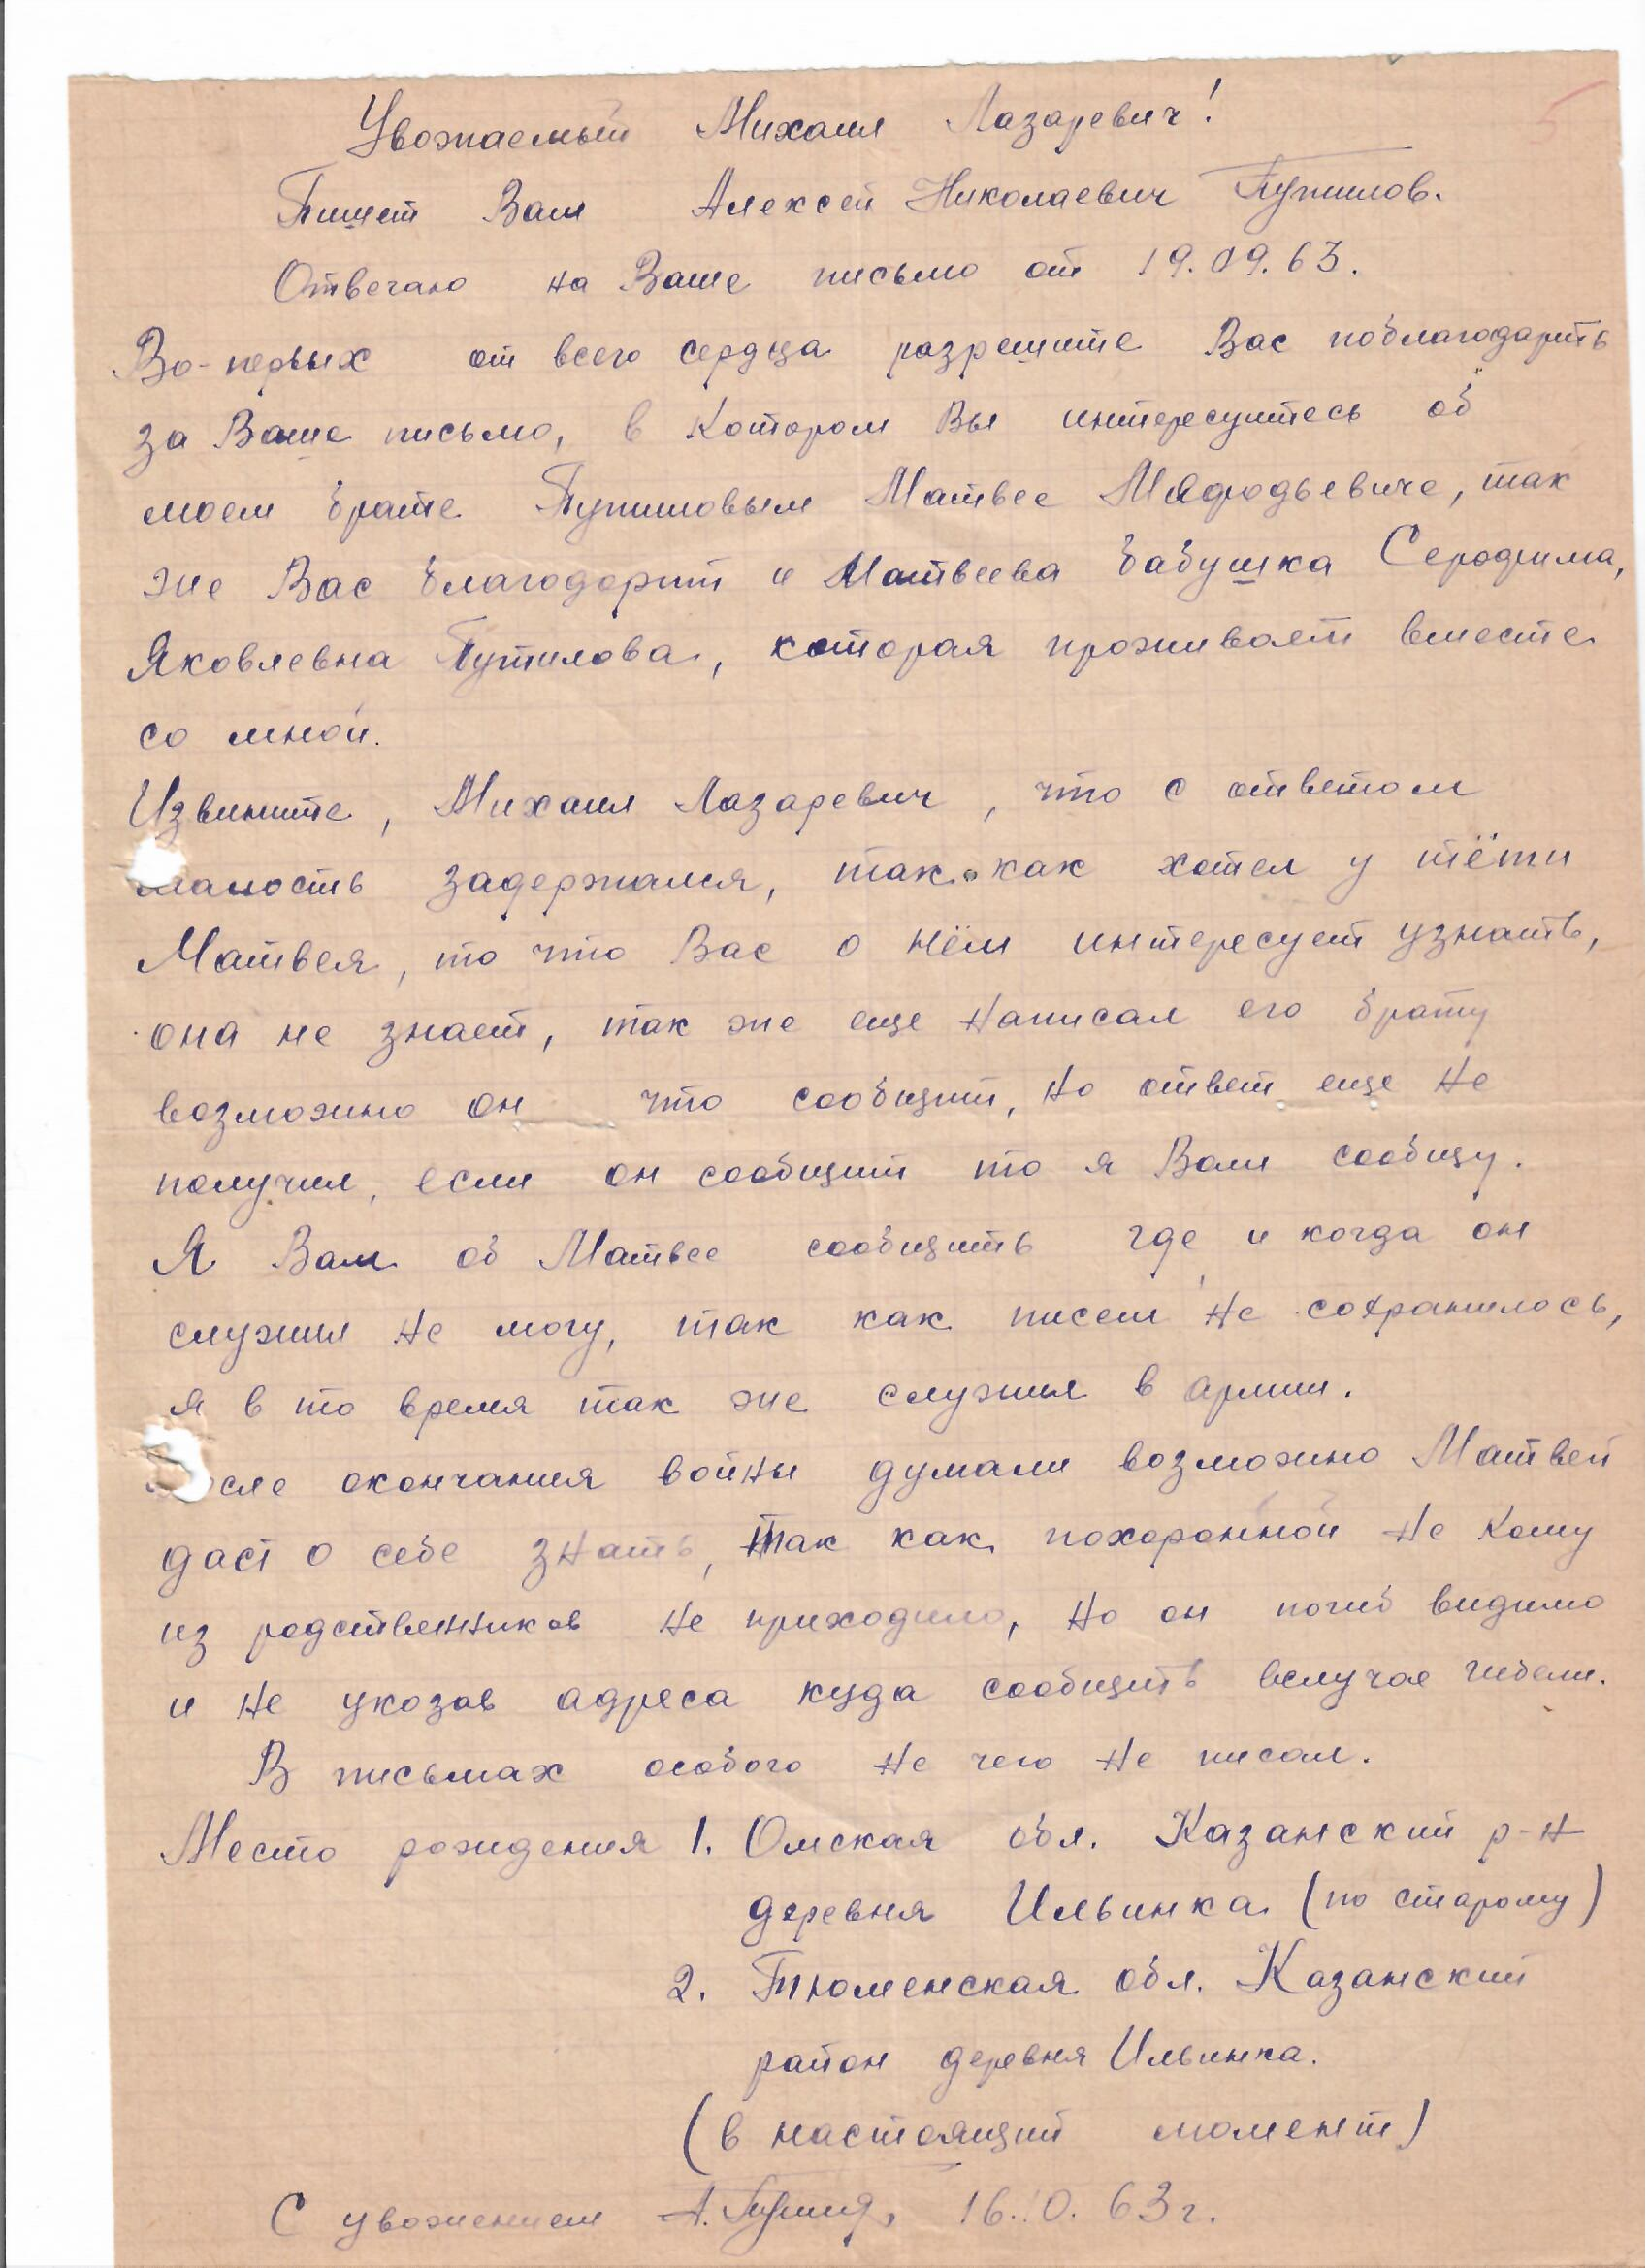 Уважаемый Михаил Лазаревич!
Пишет Вам Алексей Николаевич Путилов.
Отвечаю на Ваше письмо от 19.09.63.
Во-первых от всего сердца разрешите Вас поблагодарить
за Ваше письмо, в котором Вы интересуитесь об
моем брате Путиловым Матвее Мяфодьевиче, так
же Вас благодорит и Матвеева бабушка Серофима,
Яковлевна Путилова, которая проживает вместе
со мной.
Извините, Михаил Лазаревич, что с ответом
малость задержался, так как хотел у тёти
Матвея, то что Вас о нём интересует узнать,
она не знает, так же еще написал его брату
возможно он что сообщит, но ответ еще не
получил, если он сообщит то я Вам сообщу.
Я Вам об Матвее сообщить где и когда он
служил не могу, так как писем не сохранилось,
я в то время так же служил в армии.
После окончания войны думали возможно Матвей
даст о себе знать, так как похоронной не кому
из родственников не приходило, но он погиб видимо
и не укозав адреса куда сообщить вслучае гибели.
В письмах особого не чего не писал.
Место рождения 1. Омская обл. Казанский р-н
деревня Ильинка (по старому)
2. Тюменская обл. Казанский
район деревня Ильинка.
(в настоящий момент)
С уважением А. 16.10.63г.